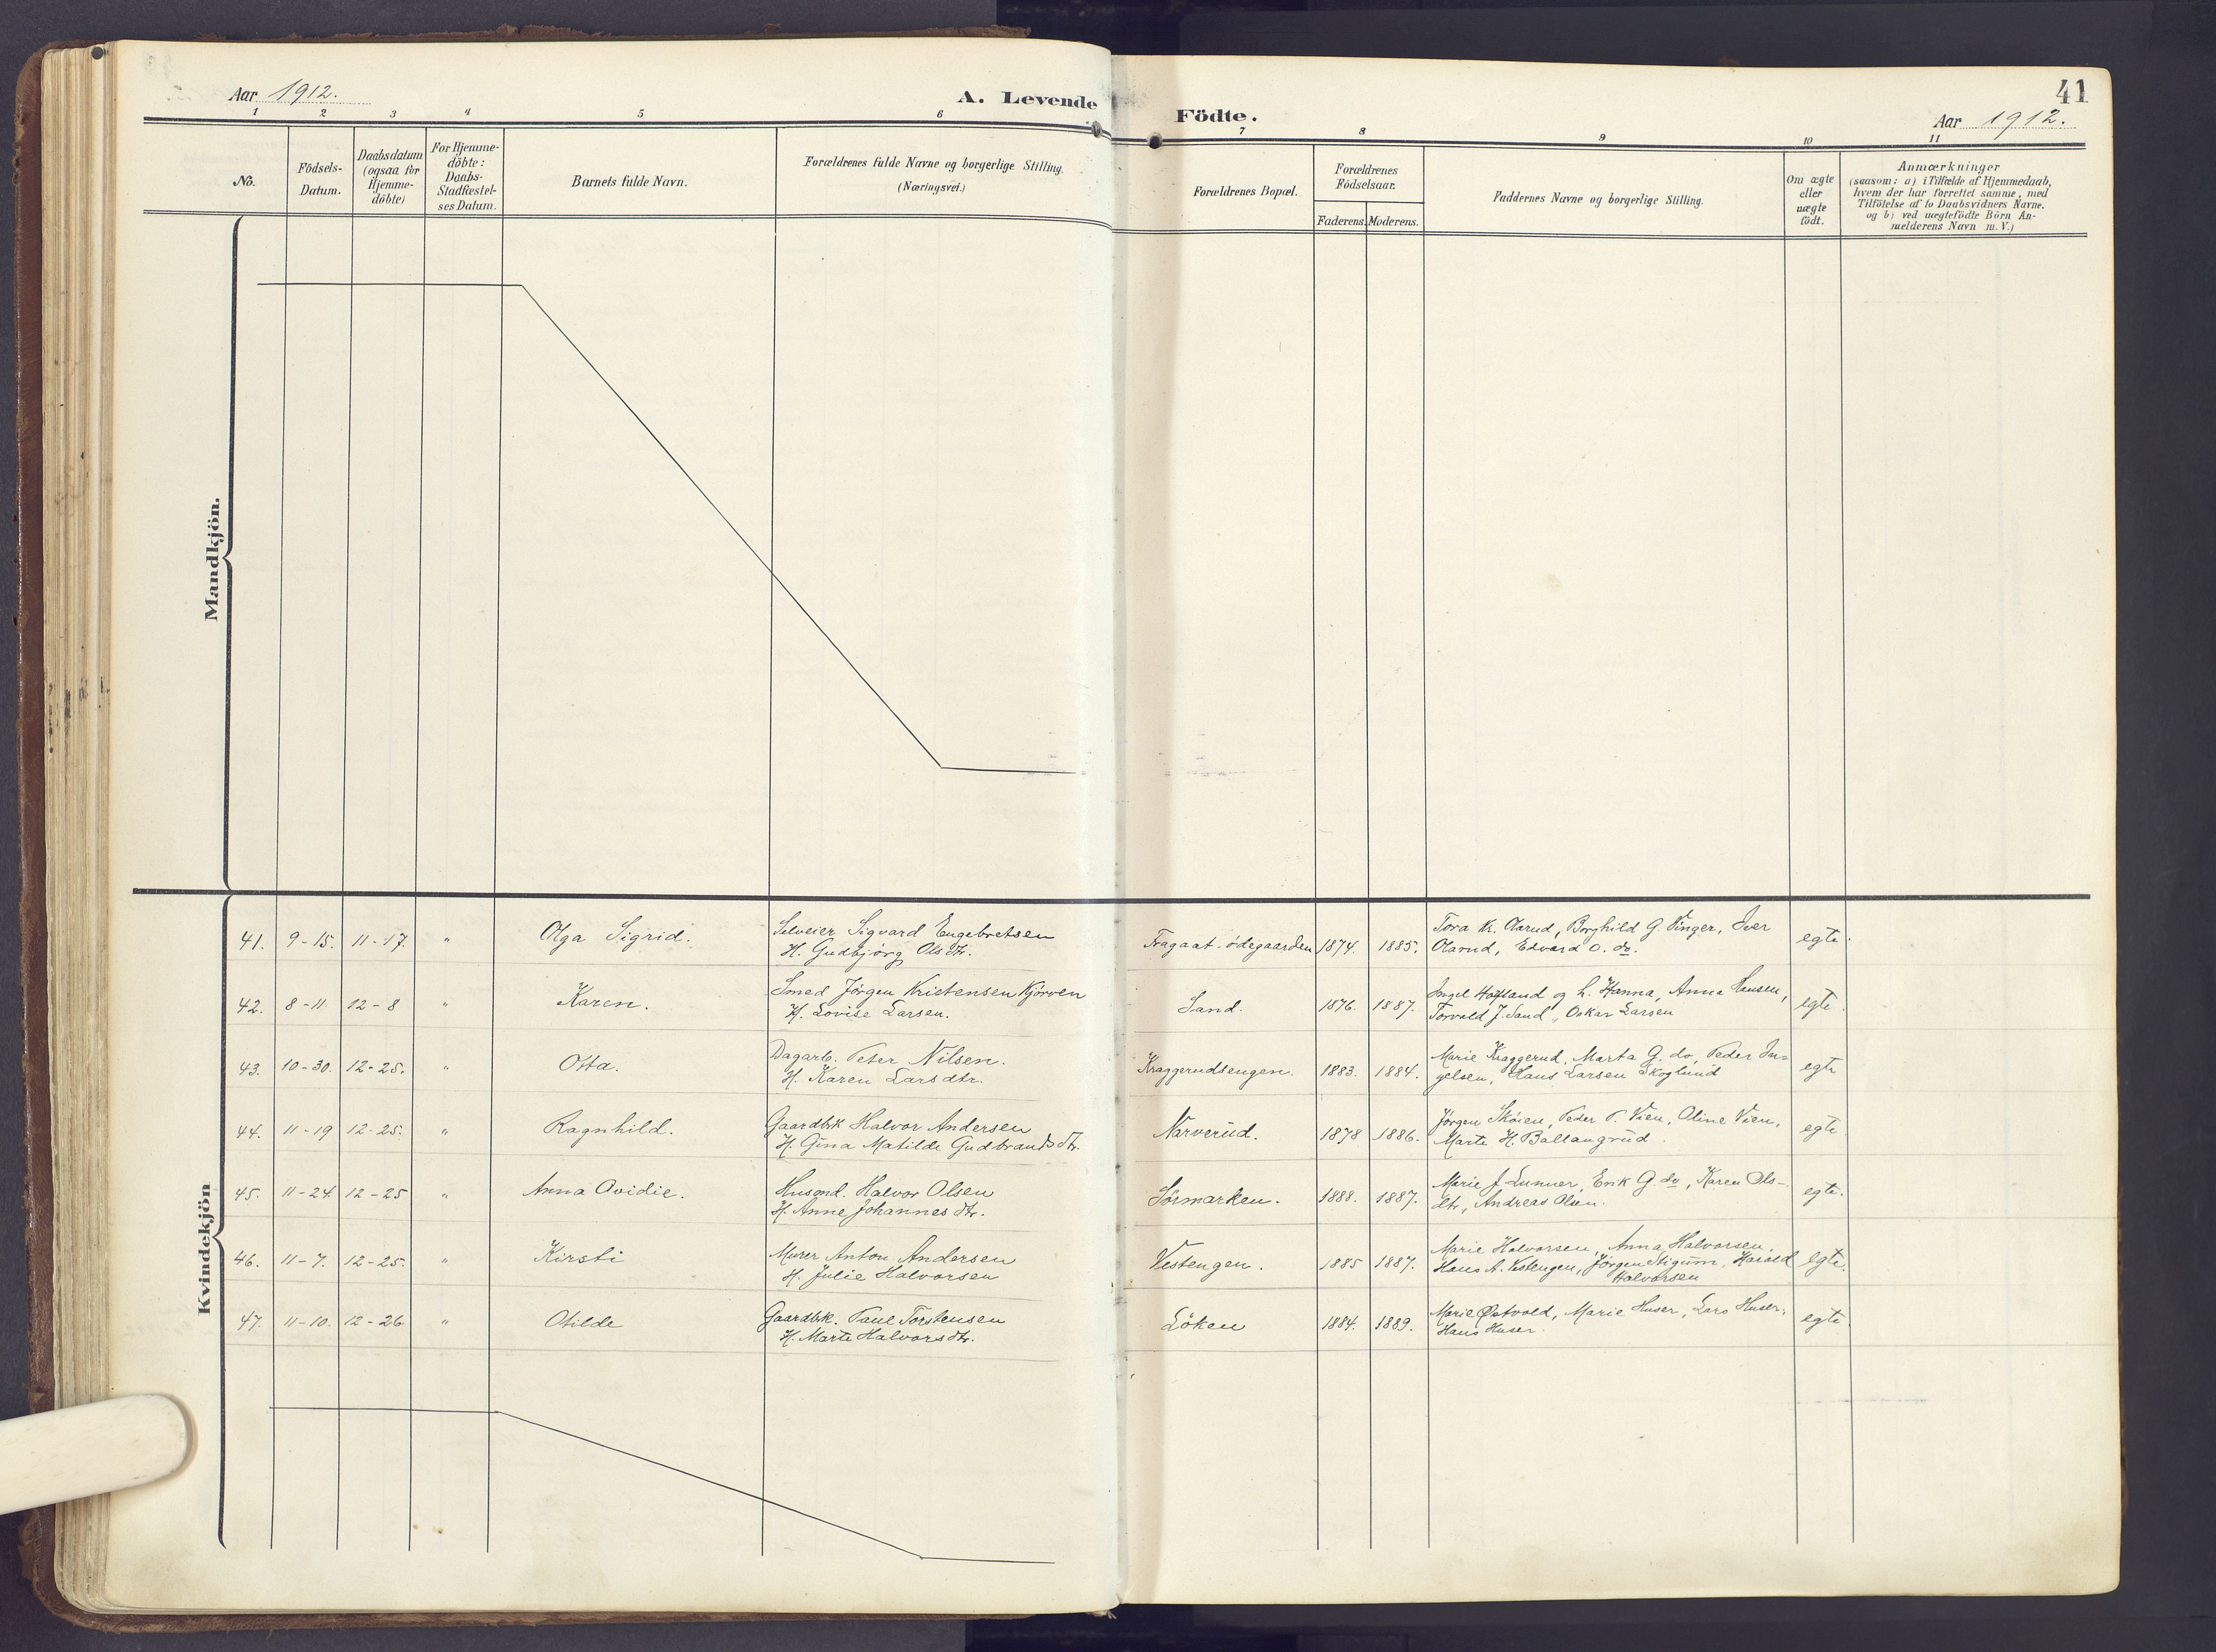 41
Aar 1912.
A. Levende Födte.
Aar 1912.
1 2 3 4 5 6 7 8 9 10 11
No.
Födsels-
Datum.
Daabsdatum
(ogsaa for
Hjemme-
döbte)
For Hjemme-
döbte:
Daabs-
Stadfæstel-
ses Datum.
Barnets fulde Navn.
Forældrenes fulde Navne og borgerlige Stilling.
(Næringsvei.)
Forældrenes Bopæl.
Forældrenes
Födselsaar.
Faderens. Moderens.
Faddernes Navne og borgerlige Stilling.
Om ægte
eller
uægte
födt.
Anmærkninger
(saasom: a) i Tilfælde af Hjemmedaab,
hvem der har forrettet samme, med
Tilföielse af to Daabsvidners Navne.
og b) ved uægtefödte Börn An-
melderens Navn m. V.)
Mandkjön.
Kvindekjön
41. 9-15. 11-17. " Olga Sigrid. Selveier Sigvard Engebretsen
H. Gudbjörg Olsdtr.
Tragaat-ödegaarden 1874. 1885. Tora K. Aarud, Borghild G. Vinger, Iver
Olarud, Edvard O. do. egte.
42. 8-11 12-8 " Karen. Smed Jörgen Kristensen Kjörven
H. Lovise Larsen.
Sand. 1876. 1887. Hofland og h. Hanna, Anna Hansen,
Torvald J. Sand, Oskar Larsen egte.
43. 10-30. 12-25. " Otta. Dagarb. Peter Nilsen.
H. Karen Larsdtr.
Kraggerudsengen. 1883. 1884. Marie Kraggerud, Marta G. do, Peder In-
gelsen, Hans Larsen Skoglund egte
44. 11-19 12-25. " Ragnhild. Gaardbk Halvor Andersen
H. Gina Matilde Gudbrandsdtr.
Narverud. 1878 1886. Jörgen Sköien, Peder P. Vien, Oline Vien,
Marte H. Ballangrud. egte.
45. 11-24. 12-25 " Anna Ovidie. Husmd. Halvor Olsen
H. Anne Johannesdtr.
Sörmarken. 1888. 1887. Marie J. Lunner, Erik G. do, Karen Ols-
dtr, Andreas Olsen. egte.
46. 11-7. 12-25. " Kirsti Murer Anton Andersen
H. Julie Halvorsen
Vestengen. 1885 1887. Marie Halvorsen, Anna Halvorsen,
Hans A. Vestengen, Jörgen Stigum, Harald
Halvorsen egte.
47. 11-10. 12-26. " Otilde Gaardbk. Paul Torstensen
H. Marte Halvorsdtr.
Löken 1884. 1889. Marie Østvold, Marie Huser, Lars Huser,
Hans Huser. egte.